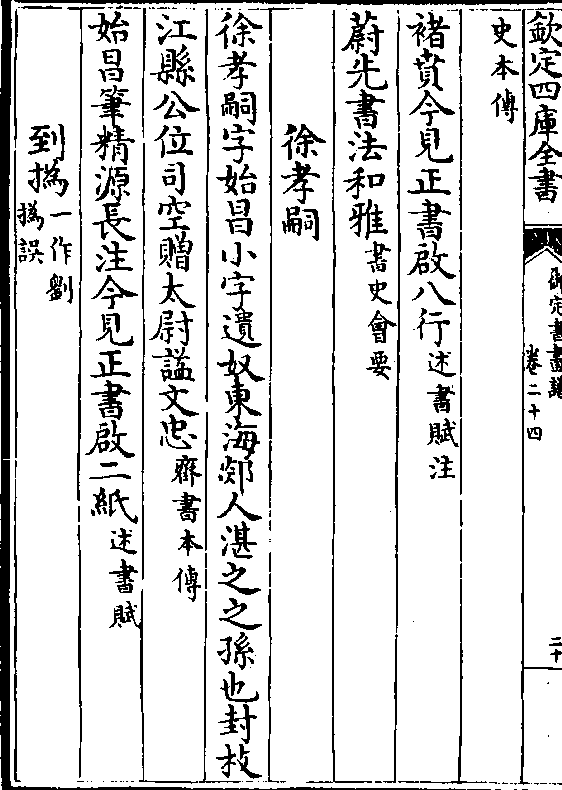 欽定四庫全書
御定書畫譜
卷二十四
二十
史本傳
褚賁今見正書啟八行述書賦注
蔚先書法和雅書史會要
徐孝嗣
徐孝嗣字始昌小字遺奴東海郯人湛之之孫也封枝
江縣公位司空贈太尉諡文忠齊書本傳
始昌筆精源長注今見正書啟二紙述書賦
到撝一作劉
撝誤